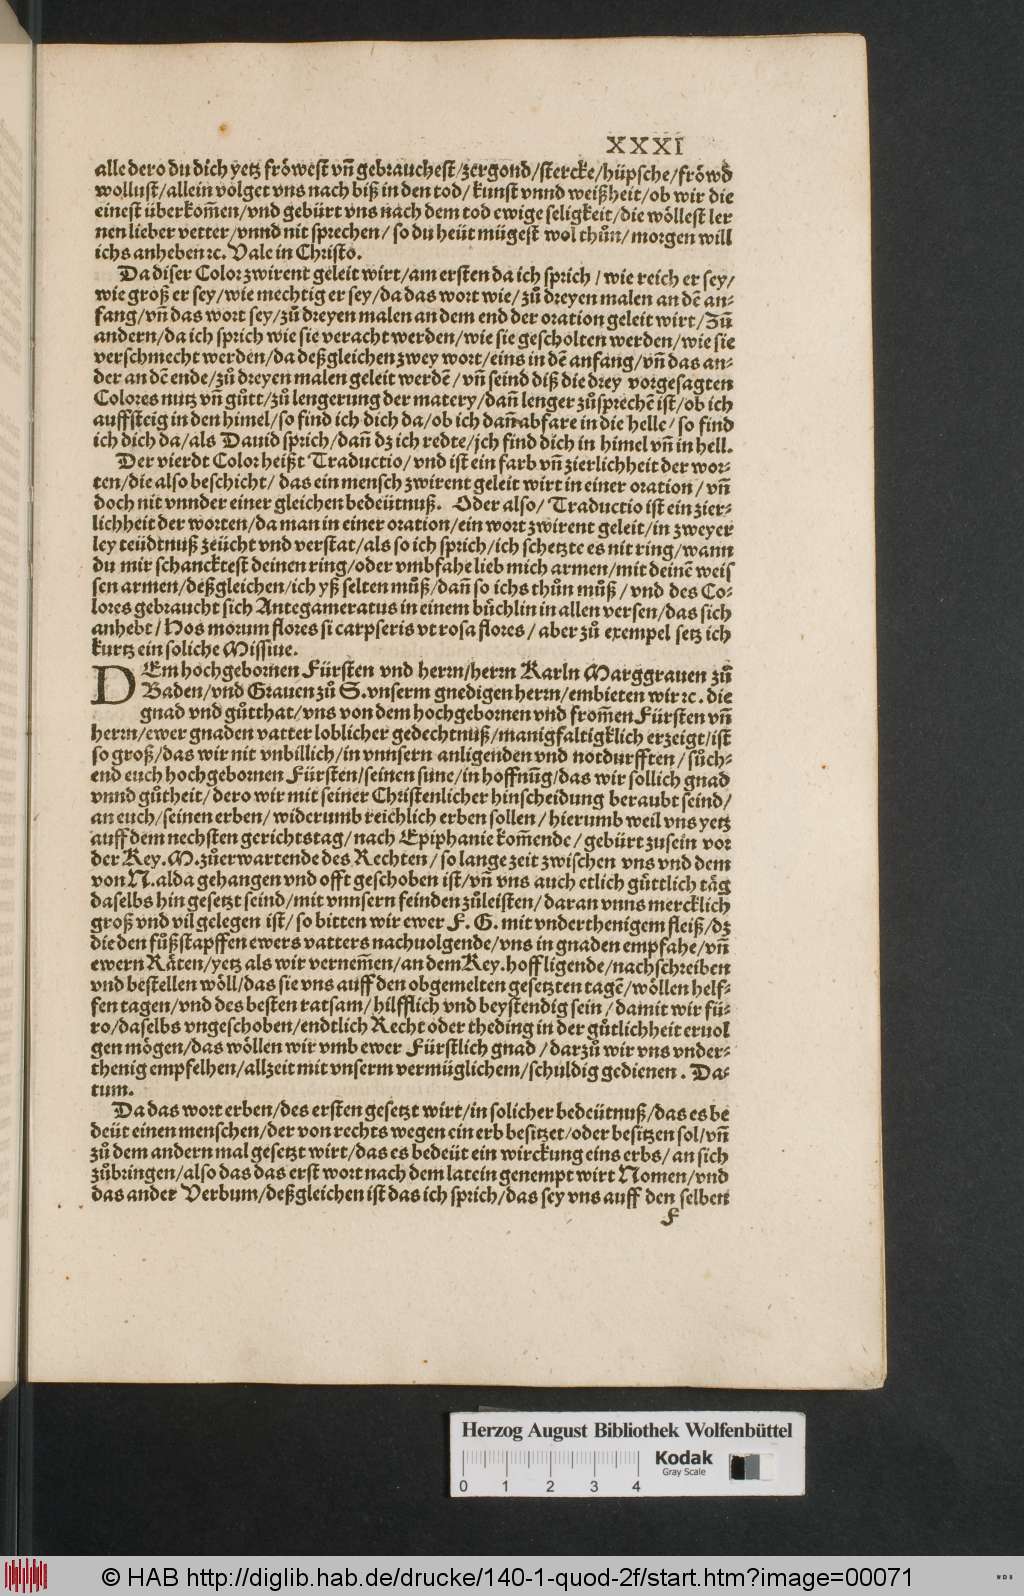 XXXI
alle dero du dich yetz fröwest vñ gebrauchest/zergond/stercke/hüpsche/fröwd
wollust/allein volget vns nach biß in den tod/kunst vnnd weißheit/ob wir die
einest überkom̃en/vnd gebürt vns nach dem tod ewige seligkeit/die wöllest ler
nen lieber vetter/vnnd nit sprechen/so du heüt mügest wol thůn/morgen will
ichs anheben ⁊c. Vale in Christo.
Da diser Color zwirent geleit wirt/am ersten da ich sprich/wie reich er sey/
wie groß er sey/wie mechtig er sey/da das wort wie/zů dreyen malen an dẽ an-
fang/vñ das wort sey/zů dreyen malen an dem end der oration geleit wirt/Zů
andern/da ich sprich wie sie veracht werden/wie sie gescholten werden/wie sie
verschmecht werden/da deßgleichen zwey wort/eins in dẽ anfang/vñ das an-
der an dẽ ende/zů dreyen malen geleit werdẽ/vñ seind diß die drey vorgesagten
Colores nutz vñ gůtt/zů lengerung der matery/dañ lenger zůsprechẽ ist/ob ich
auffsteig in den himel/so find ich dich da/ob ich dañ abfare in die helle/so find
ich dich da/als Dauid sprich/dañ dz ich redte/ich find dich in himel vñ in hell.
Der vierdt Color heißt Traductio/vnd ist ein farb vñ zierlichheit der wor-
ten/die also beschicht/das ein mensch zwirent geleit wirt in einer oration/vñ
doch nit vnnder einer gleichen bedeütnuß. Oder also/Traductio ist ein zier-
lichheit der worten/da man in einer oration/ein wort zwirent geleit/in zweyer
ley teüdtnuß zeücht vnd verstat/als so ich sprich/ich schetzte es nit ring/wann
du mir schancktest deinen ring/oder vmbfahe lieb mich armen/mit deinẽ weis
sen armen/deßgleichen/ich yß selten můß/dañ so ichs thůn můß/vnd des Co-
lores gebraucht sich Antegameratus in einem büchlin in allen versen/das sich
anhebt/Hos morum flores si carpseris vt rosa flores/aber zů exempel setz ich
kurtz ein soliche Missiue.
DEm hochgebornen Fürsten vnd herrn/herrn Karln Marggrauen zů
Baden/vnd Grauen zů S. vnserm gnedigen herrn/embieten wir ⁊c. die
gnad vnd gůtthat/vns von dem hochgebornen vnd from̃en Fürsten vñ
herrn/ewer gnaden vatter loblicher gedechtnuß/manigfaltigklich erzeigt/ist
so groß/das wir nit vnbillich/in vnnsern anligenden vnd notdurfften/sůch-
end euch hochgebornen Fürsten/seinen süne/in hoffnũg/das wir sollich gnad
vnnd gůtheit/dero wir mit seiner Christenlicher hinscheidung beraubt seind/
an euch/seinen erben/widerumb reichlich erben sollen/hierumb weil vns yetz
auff dem nechsten gerichtstag/nach Epiphanie kom̃ende/gebürt zusein vor
der Key. M. zůerwartende des Rechten/so lange zeit zwischen vns vnd dem
von N. alda gehangen vnd offt geschoben ist/vñ vns auch etlich güttlich täg
daselbs hin gesetzt seind/mit vnnsern feinden zůleisten/daran vnns mercklich
groß vnd vil gelegen ist/so bitten wir ewer F. G. mit vnderthenigem fleiß/dz
die den fůßstapffen ewers vatters nachuolgende/vns in gnaden empfahe/vñ
ewern Räten/yetz als wir vernem̃en/an dem Key. hoff ligende/nachschreiben
vnd bestellen wöll/das sie vns auff den obgemelten gesetzten tagẽ/wöllen helf-
fen tagen/vnd des besten ratsam/hilfflich vnd beystendig sein/damit wir fü-
ro/daselbs vngeschoben/endtlich Recht oder theding in der gůtlichheit eruol
gen mögen/das wöllen wir vmb ewer Fürstlich gnad/darzů wir vns vnder-
thenig empfelhen/allzeit mit vnserm vermüglichem/schuldig gedienen. Da-
tum.
Da das wort erben/des ersten gesetzt wirt/in solicher bedeütnuß/das es be
deüt einen menschen/der von rechts wegen ein erb besitzet/oder besitzen sol/vñ
zů dem andern mal gesetzt wirt/das es bedeüt ein wirckung eins erbs/an sich
zůbringen/also das das erst wort nach dem latein genempt wirt Nomen/vnd
das ander Verbum/deßgleichen ist das ich sprich/das sey vns auff den selben
F
Herzog August Bibliothek Wolfenbüttel
Kodak
Gray Scale
0 1 2 3 4
© HAB http://diglib.hab.de/drucke/140-1-quod-2f/start.htm?image=00071